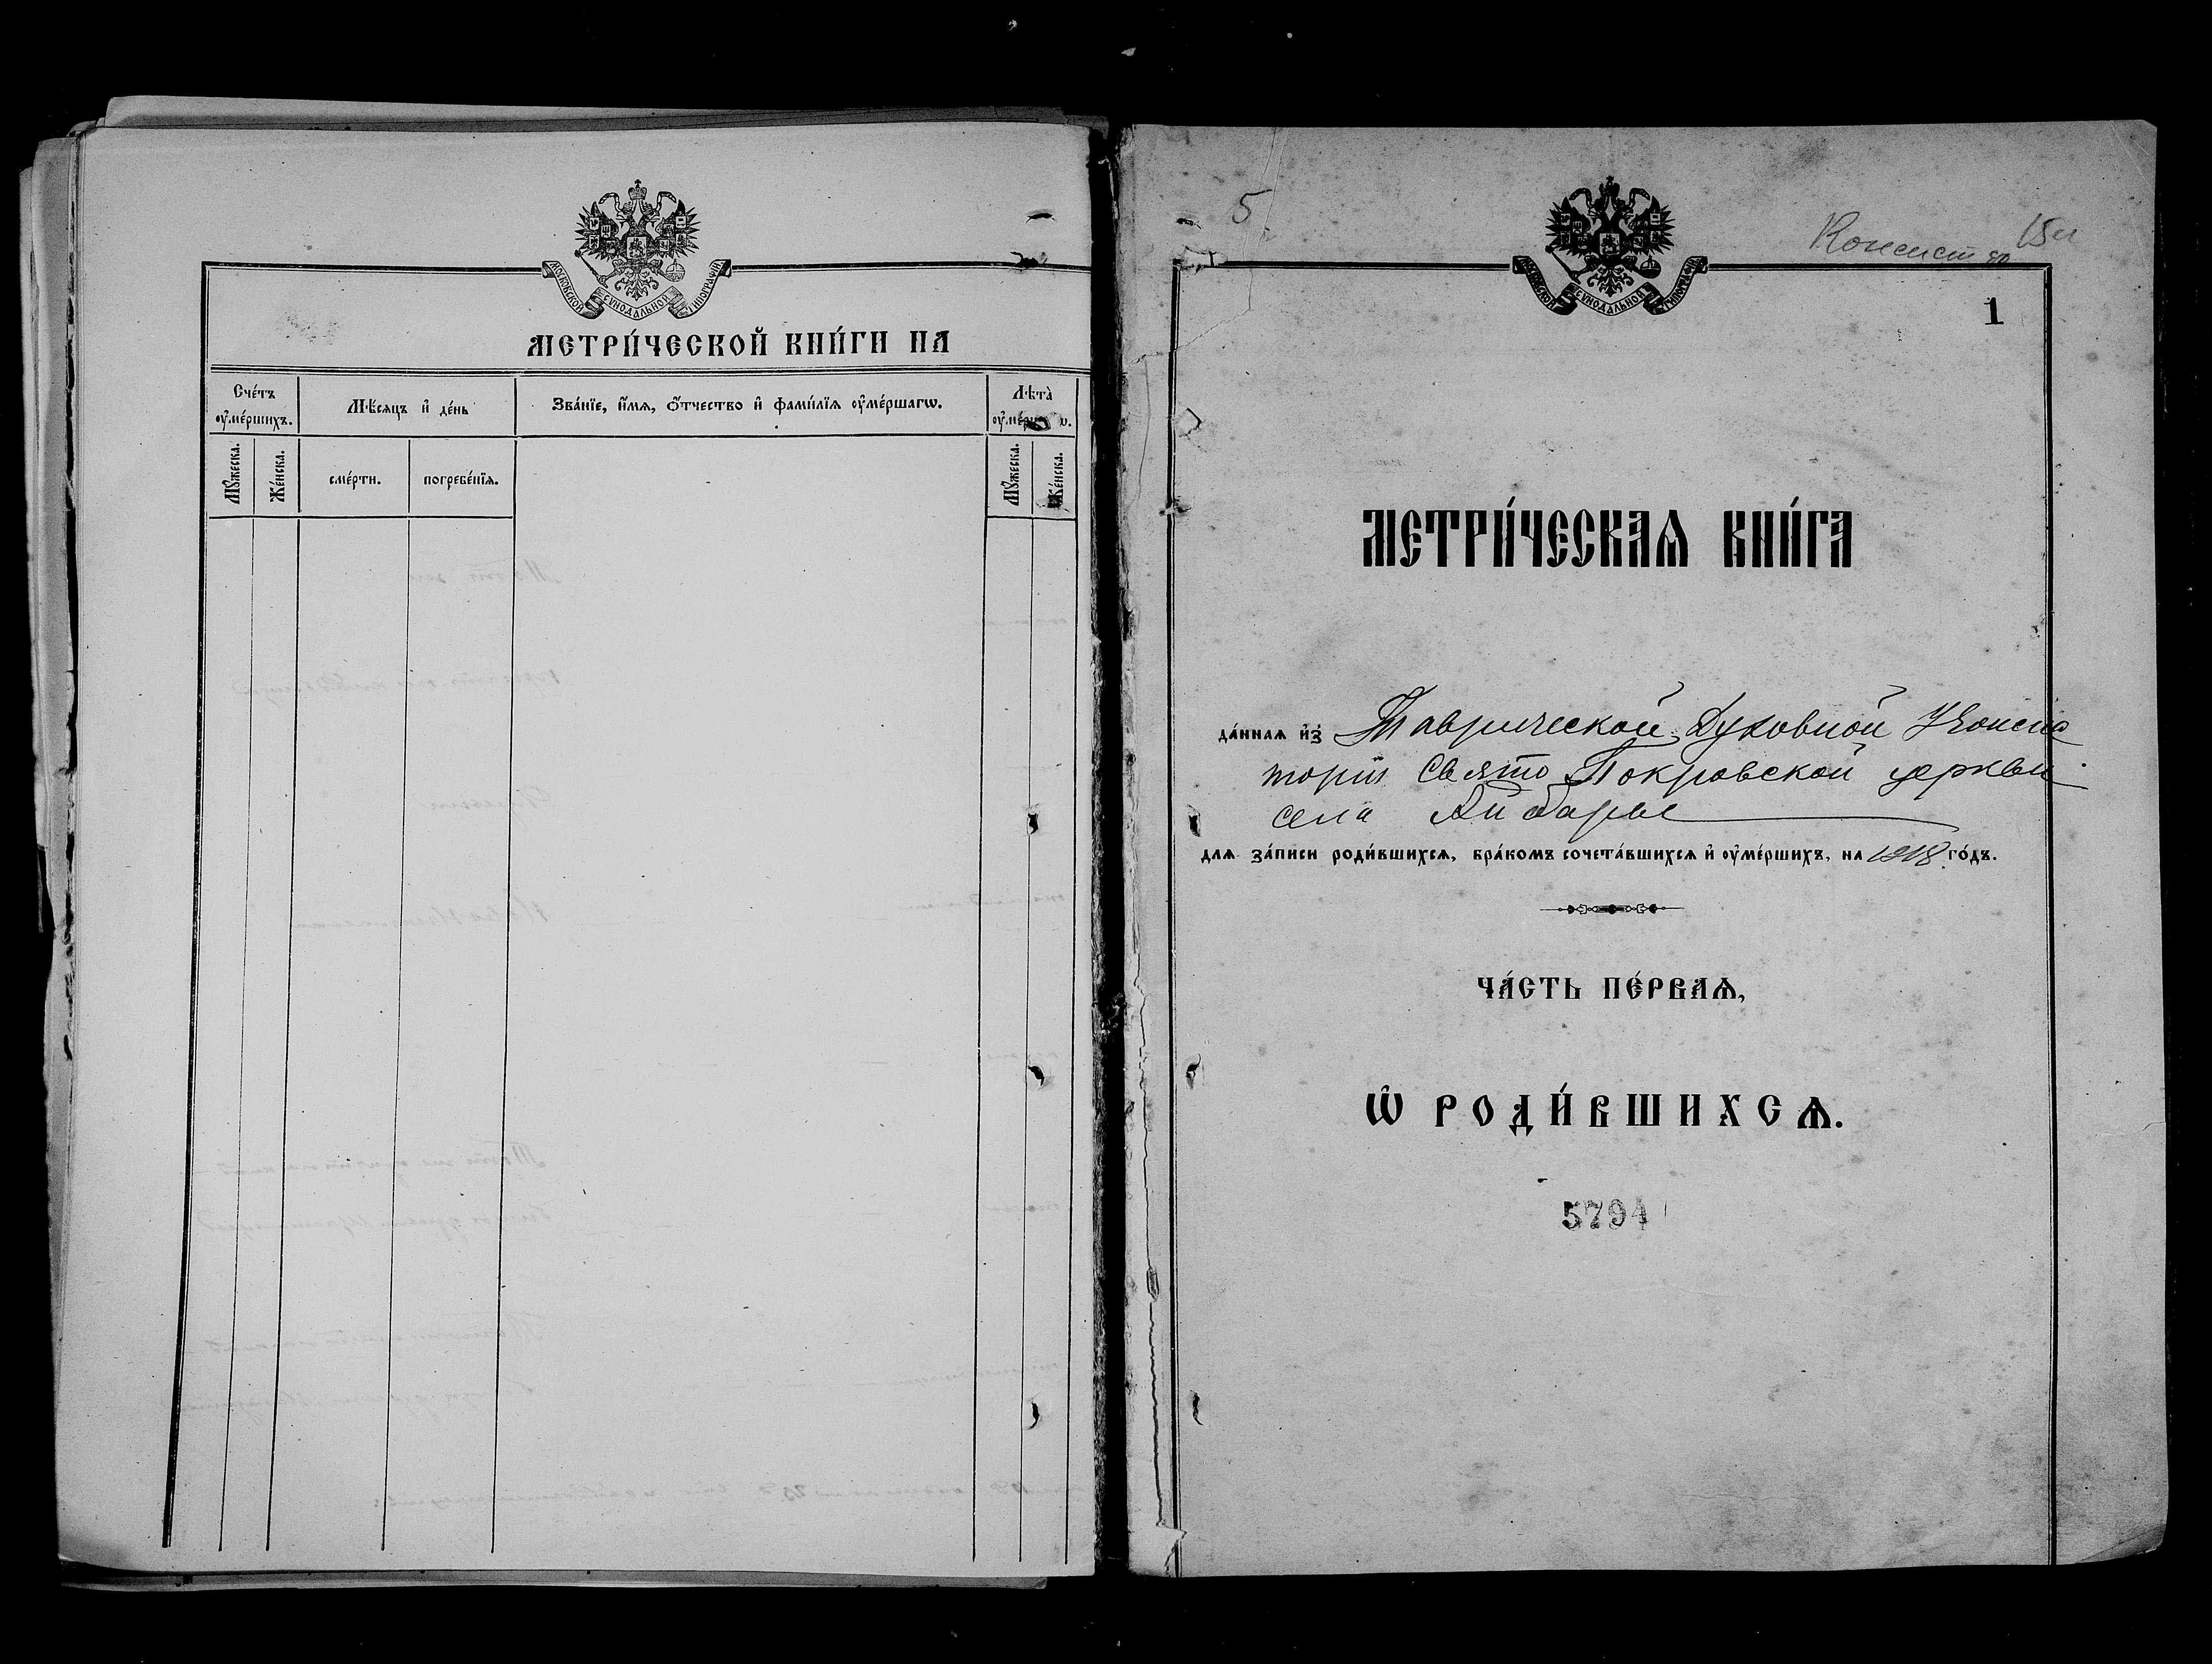 МОСКОВСКОЙ СѴНОДАЛЬНОЙ ТИПОГРАФІИ
МЕТРИ́ЧЕСКОЙ КНИ́ГИ НА
Сче́тъ оу҆ме́ршихъ.
Мѣ́сяцъ и҆ де́нь
Зва́нїе, и҆́мѧ, ѻ҆́тчество и҆ фами́лїѧ оу҆ме́ршагѡ.
Лѣ́та̀
Мꙋ́жеска.
Же́нска.
сме́рти.
погребе́нїѧ.
Мꙋ́жеска.
Же́нска.
5
15
МОСКОВСКОЙ СѴНОДАЛЬНОЙ ТИПОГРАФІИ
1
МЕТРИ́ЧЕСКАѦ КНИ́ГА
да́ннаѧ и҆з̾ Таврической Духовной Консис
торіи Свято Покровской церкви
села Айбары
длѧ за́писи роди́вшихсѧ, бра́комъ сочета́вшихсѧ и҆ оу҆ме́ршихъ, на 1918 го́дъ.
ЧА́СТЬ ПЕ́РВАѦ,
Ѽ РОДИ́ВШИХСѦ.
5794